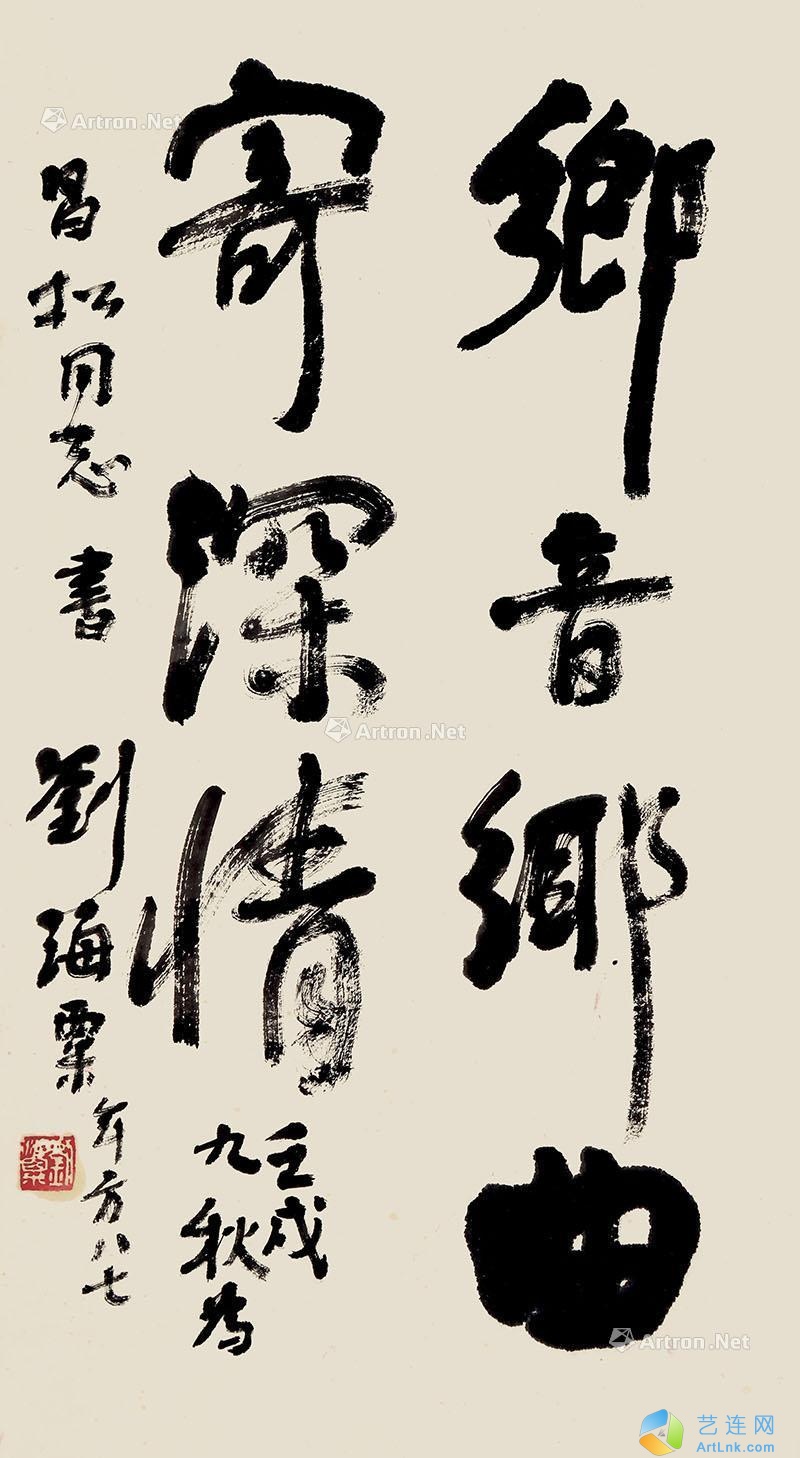 鄉音鄉曲
寄深情
壬戌
九秋为
昌松同志書
劉海粟年方八七
Artron.Net
Artron.Net
Artron.Net
艺连网
ArtLnk.com